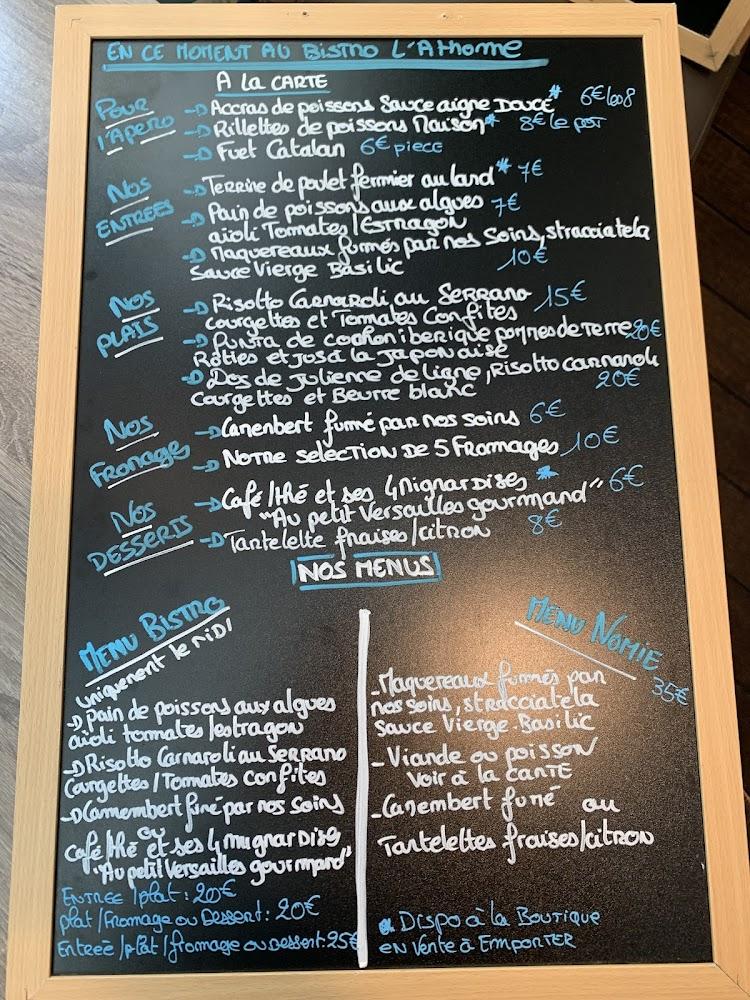 EN CE MOMENT AU BISTRO L'AThome
A LA CARTE
POUR L'APERO
Accras de poissons Sauce aigne Douce* 6€ les 8
Rillettes de poissons Maison* 8€ le pot
Fuet Catalan 6€ piece
NOS ENTREES
Terrine de poulet fermier au lard* 7€
Pain de poissons aux algues 7€
aïoli Tomates / Estragon
Maquereaux fumés par nos Soins, stracciatela
Sauce Vierge Basilic 10€
NOS PLATS
Risotto Carnaroli au SERRANO 15€
courgettes et Tomates Confites
Punta de cochon iberique pommes de terre 20€
Roties et jus à la japonaise
Dos de Julienne de ligne, Risotto carnaroli
Courgettes et Beurre blanc 20€
NOS FROMAGES
Camenbert fumé par nos soins 6€
NOTRE SELECTION DE 5 FROMAGES 10€
NOS DESSERTS
Café / thé et ses 4 Mignardises * 6€
"Au petit Versailles gourmand"
Tartelette fraises / citron 8€
NOS MENUS
MENU BISTRO
uniquement le MIDI
Pain de poissons aux algues
aïoli tomates / estragon
Risotto Carnaroli au SERRANO
Courgettes / Tomates confites
Camembert fumé par nos Soins
ou
Café / thé et ses 4 mignardises
"Au petit Versailles gourmand"
ENTREE / plat : 20€
plat / Fromage ou Dessert : 20€
Entreé / plat / fromage ou dessert : 25€
MENU NOMIE
35€
- Maquereaux fumés par
nos soins, stracciatela
Sauce Vierge - Basilic
- Viande ou poisson
Voir à la CARTE
- Camembert fumé ou
Tartelettes fraises / citron
* DISPO à la BOUTIQUE
EN VENTE à EMPORTER